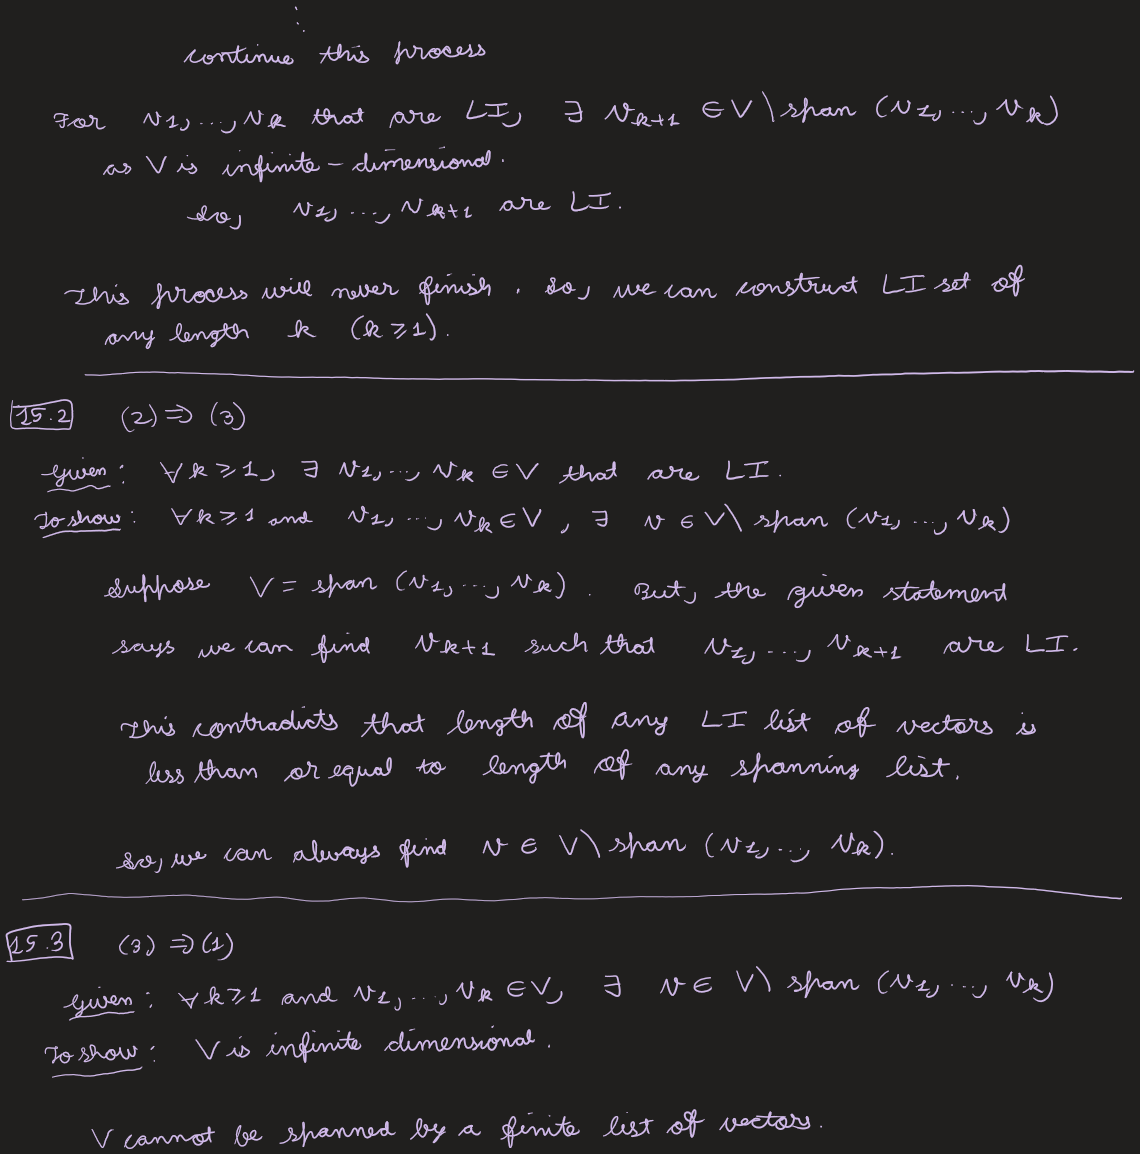 ⋮
continue this process
For v1, ..., vk that are LI, ∃ vk+1 ∈ V \ span (v1, ..., vk)
as V is infinite-dimensional.
so, v1, ..., vk+1 are LI.
This process will never finish. So, we can construct LI set of
any length k (k ≥ 1).
15.2 (2) ⇒ (3)
Given: ∀ k ≥ 1, ∃ v1, ..., vk ∈ V that are LI.
To show: ∀ k ≥ 1 and v1, ..., vk ∈ V, ∃ v ∈ V \ span (v1, ..., vk)
Suppose V = span (v1, ..., vk). But, the given statement
says we can find vk+1 such that v1, ..., vk+1 are LI.
This contradicts that length of any LI list of vectors is
less than or equal to length of any spanning list.
So, we can always find v ∈ V \ span (v1, ..., vk).
15.3 (3) ⇒ (1)
Given: ∀ k ≥ 1 and v1, ..., vk ∈ V, ∃ v ∈ V \ span (v1, ..., vk)
To show: V is infinite dimensional.
V cannot be spanned by a finite list of vectors.